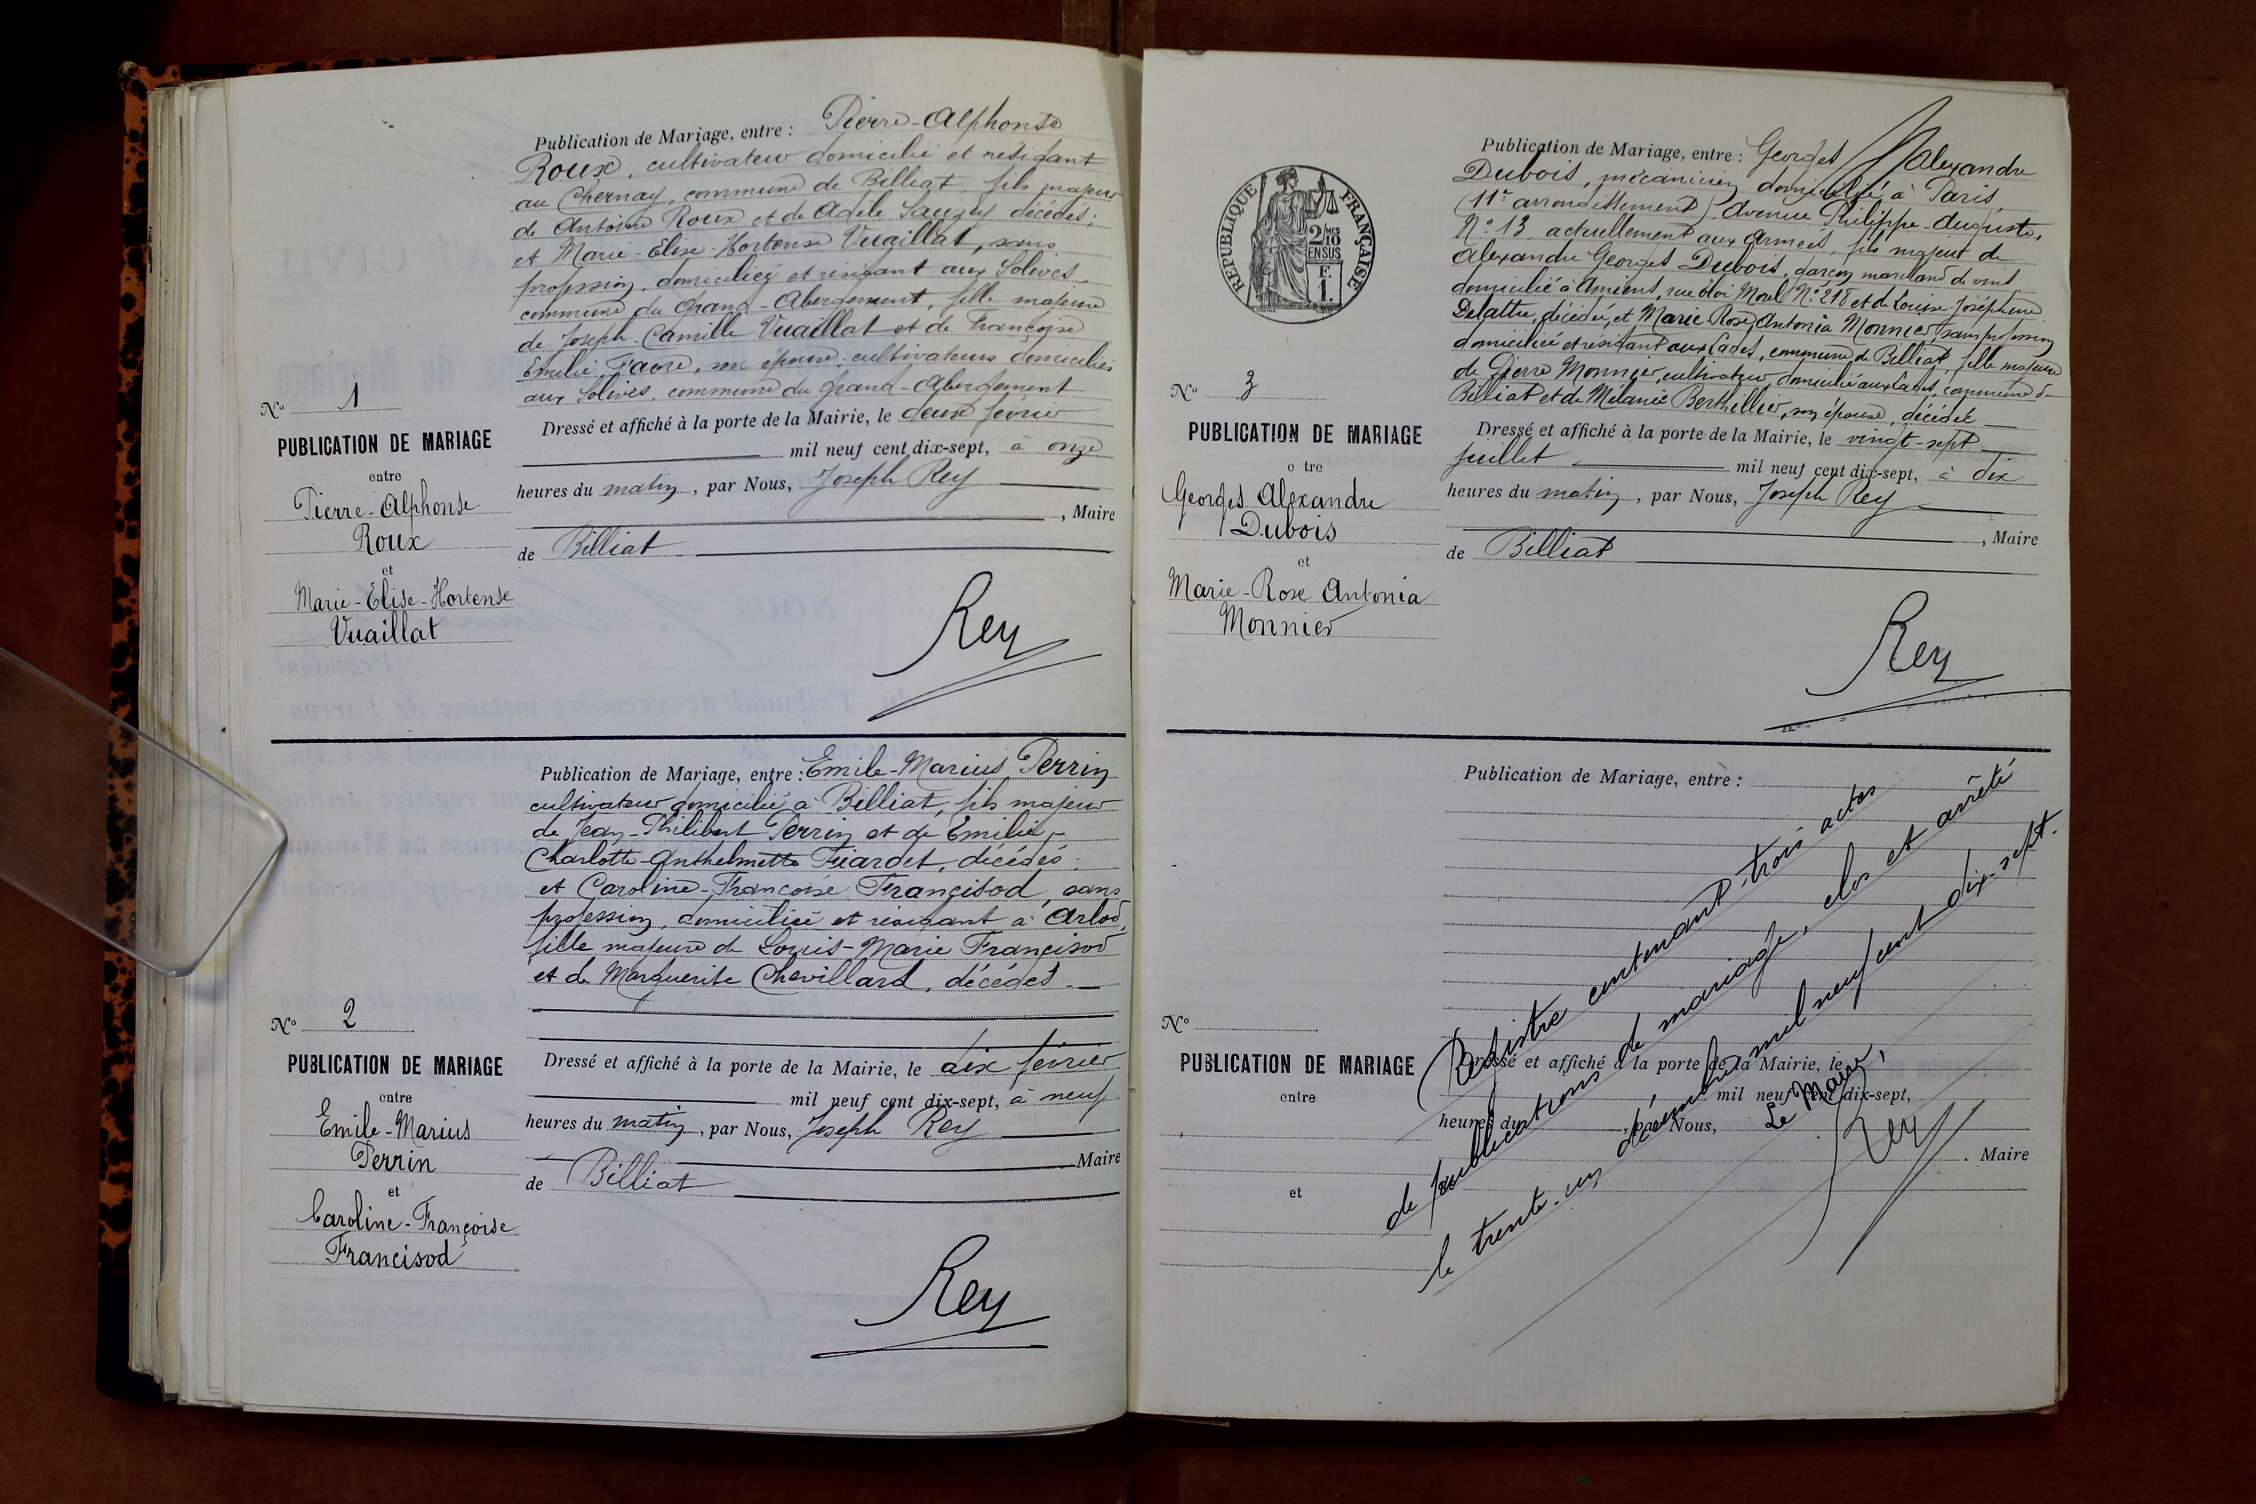 Publication de Mariage, entre : Pierre-Alphonse
Roux, cultivateur domicilié et résidant
au Chernay, commune de Billiat, fils majeur
de Antoine Roux et de Adèle Saugey décédés ;
et Marie-Elise-Hortense Vuaillat, sans
profession, domiciliée et résidant aux Solives
commune du Grand-Abergement, fille majeure
de Joseph-Camille Vuaillat et de Françoise
Emélie Favre, son épouse, cultivateurs domiciliés
aux Solives, commune du Grand-Abergement
Dressé et affiché à la porte de la Mairie, le deux février
mil neuf cent dix-sept, à onze
heures du matin, par Nous, Joseph Rey
, Maire
de Billiat
Rey
No 1
PUBLICATION DE MARIAGE
entre
Pierre-Alphonse
Roux
et
Marie-Elise-Hortense
Vuaillat
Publication de Mariage, entre : Emile-Marius Perrin
cultivateur domicilié à Billiat, fils majeur
de Jean-Philibert Perrin et de Emilie-
Charlotte-Anthelmette Tiardet, décédés ;
et Caroline-Françoise Francisod, sans
profession, domiciliée et résidant à Arlod,
fille majeure de Louis-Marie Francisod
et de Marguerite Chevillard, décédés.
Dressé et affiché à la porte de la Mairie, le dix février
mil neuf cent dix-sept, à neuf
heures du matin, par Nous, Joseph Rey
Maire
de Billiat
Rey
No 2
PUBLICATION DE MARIAGE
entre
Emile-Marius
Perrin
et
Caroline-Françoise
Francisod
REPUBLIQUE FRANÇAISE
2 MES
/10
EN SUS
F.
1.
Publication de Mariage, entre : Georges Alexandre
Dubois, mécanicien domicilié à Paris,
(11e arrondissement), Avenue Philippe-Auguste,
No 13, actuellement aux Armées, fils majeur de
Alexandre Georges Dubois, garçon marchand de vins
domicilié à Amiens, rue Eloi Morel No 218 et de Louise Joséphine
Delattre, décédée, et Marie-Rose Antonia Monnier, sans profession
domiciliée et résidant aux Cades, commune de Billiat, fille majeure
de Pierre Monnier, cultivateur domicilié aux Cades, commune de
Billiat et de Mélanie Berthillier, son épouse, décédée
Dressé et affiché à la porte de la Mairie, le vingt-sept
juillet mil neuf cent dix-sept, à dix
heures du matin, par Nous, Joseph Rey
, Maire
de Billiat
Rey
No 3
PUBLICATION DE MARIAGE
e tre
Georges Alexandre
Dubois
et
Marie-Rose Antonia
Monnier
Publication de Mariage, entre :
Dressé et affiché à la porte de la Mairie, le
mil neuf cent dix-sept,
heures du , par Nous,
. Maire
No
PUBLICATION DE MARIAGE
entre
et
Registre contenant trois actes
de publications de mariage, clos et arrêté
le trente-un décembre mil neuf cent dix-sept.
Le Maire,
Rey